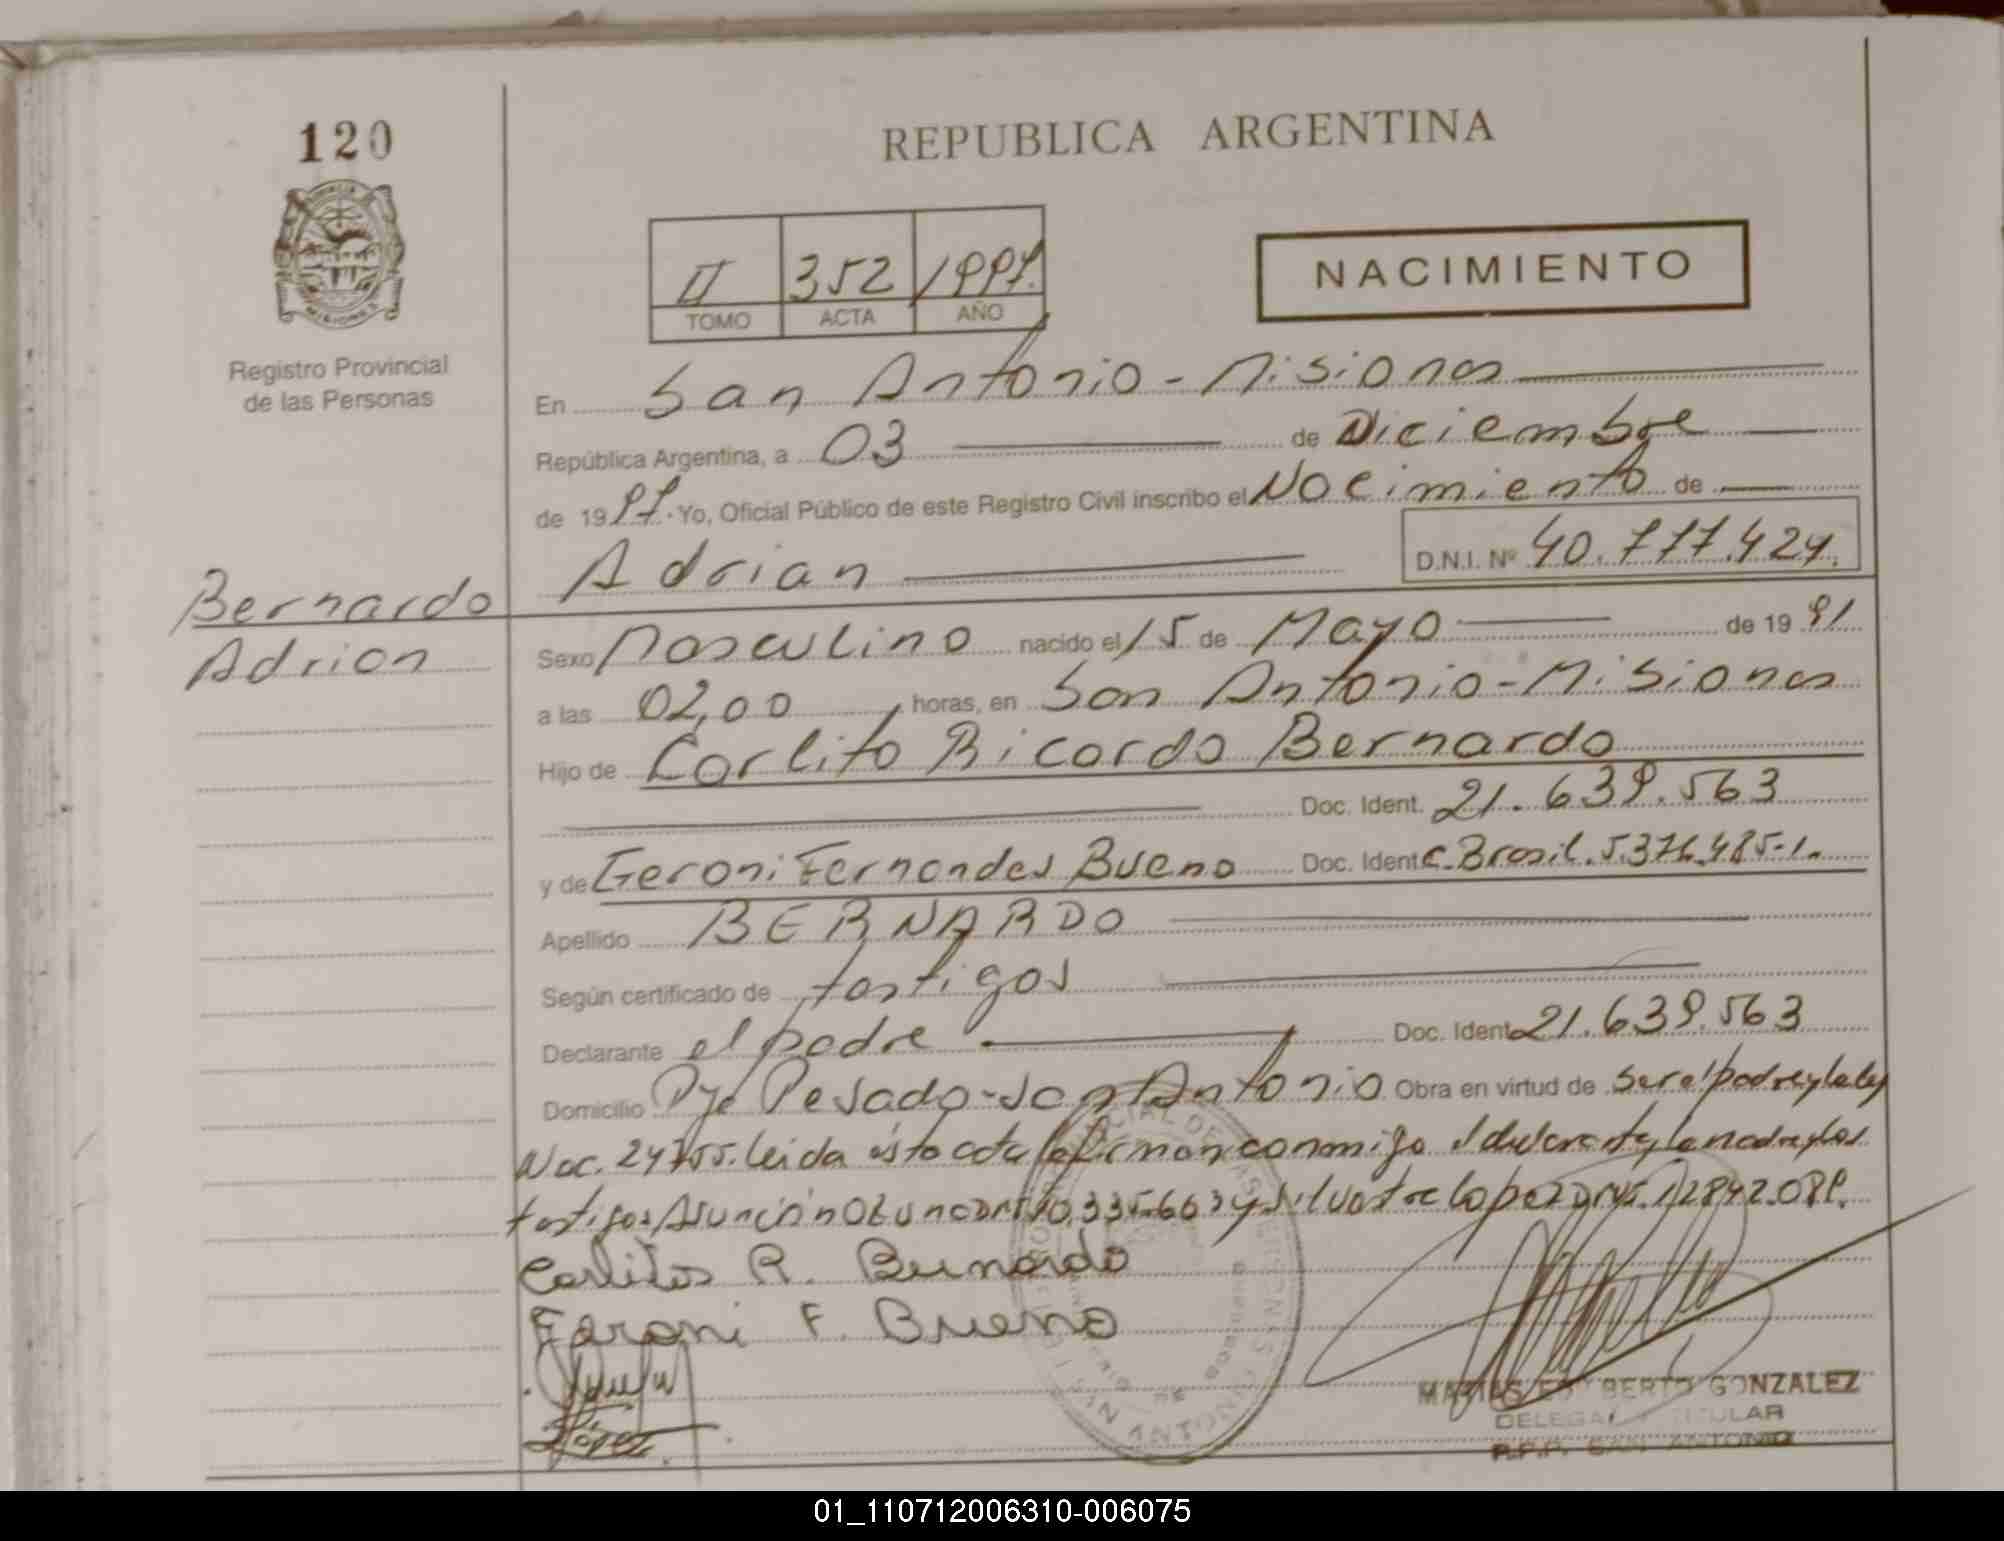 120
REPUBLICA ARGENTINA
II 352 1997.
TOMO ACTA AÑO
NACIMIENTO
Registro Provincial
de las Personas
En San Antonio - Misiones
República Argentina, a 03 de Diciembre
de 1997. Yo, Oficial Público de este Registro Civil inscribo el Nacimiento de
Adrian D.N.I. Nº 40.777.424.
Bernardo
Adrian
Sexo Masculino nacido el 15 de Mayo de 1991
a las 02,00 horas, en San Antonio - Misiones
Hijo de Carlito Ricardo Bernardo
Doc. Ident. 21.639.563
y de Geroni Fernandes Bueno Doc. Ident. C. Brasil. 5.376.485-1.
Apellido BERNARDO
Según certificado de testigos
Declarante el padre Doc. Ident. 21.639.563
Domicilio Pje Pesado - San Antonio Obra en virtud de ser el padre y la ley
Nac. 24755. leida esta acta la firman conmigo el declarante, la madre y los
testigos Asunción y Silvestre Lopez 12842.089.
Carlitos R. Bernardo
Geroni F. Bueno
López
MATIAS EDILBERTO GONZALEZ
DELEGADO TITULAR
R.P.P. SAN ANTONIO
01_110712006310-006075